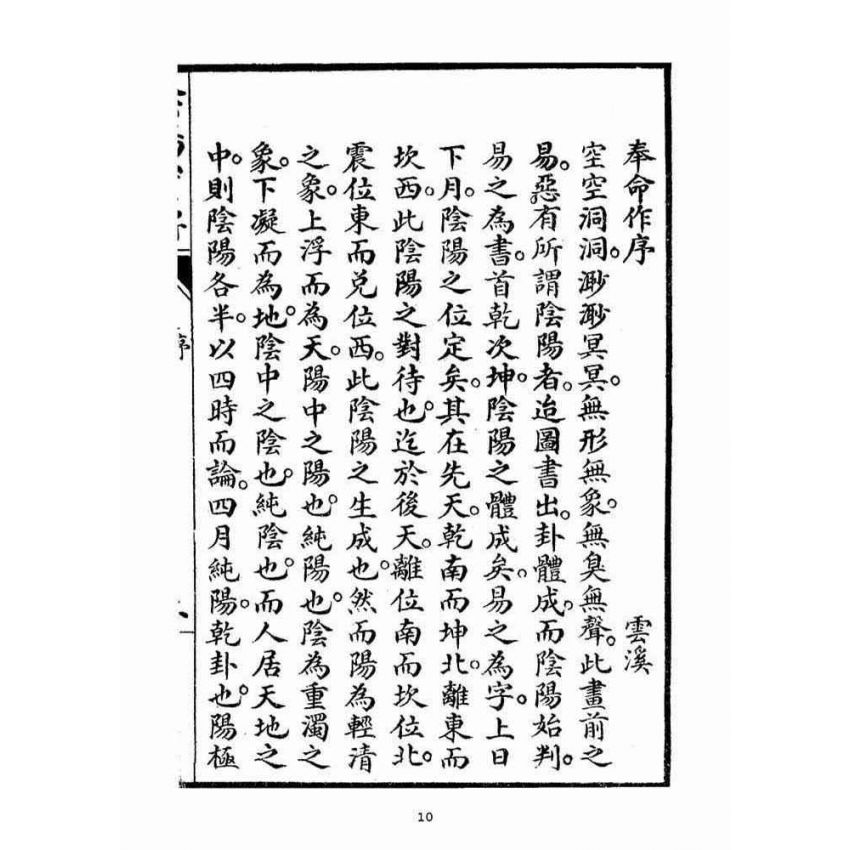 奉命作序 雲溪
空空洞洞。渺渺冥冥。無形無象。無臭無聲。此畫前之
易。惡有所謂陰陽者。迨圖書出。卦體成。而陰陽始判。
易之為書。首乾次坤。陰陽之體成矣。易之為字。上日
下月。陰陽之位定矣。其在先天。乾南而坤北。離東而
坎西。此陰陽之對待也。迄於後天。離位南而坎位北。
震位東而兌位西。此陰陽之生成也。然而陽為輕清
之象。上浮而為天。陽中之陽也。純陽也。陰為重濁之
象。下凝而為地。陰中之陰也。純陰也。而人居天地之
中。則陰陽各半。以四時而論。四月純陽。乾卦也。陽極
序
10